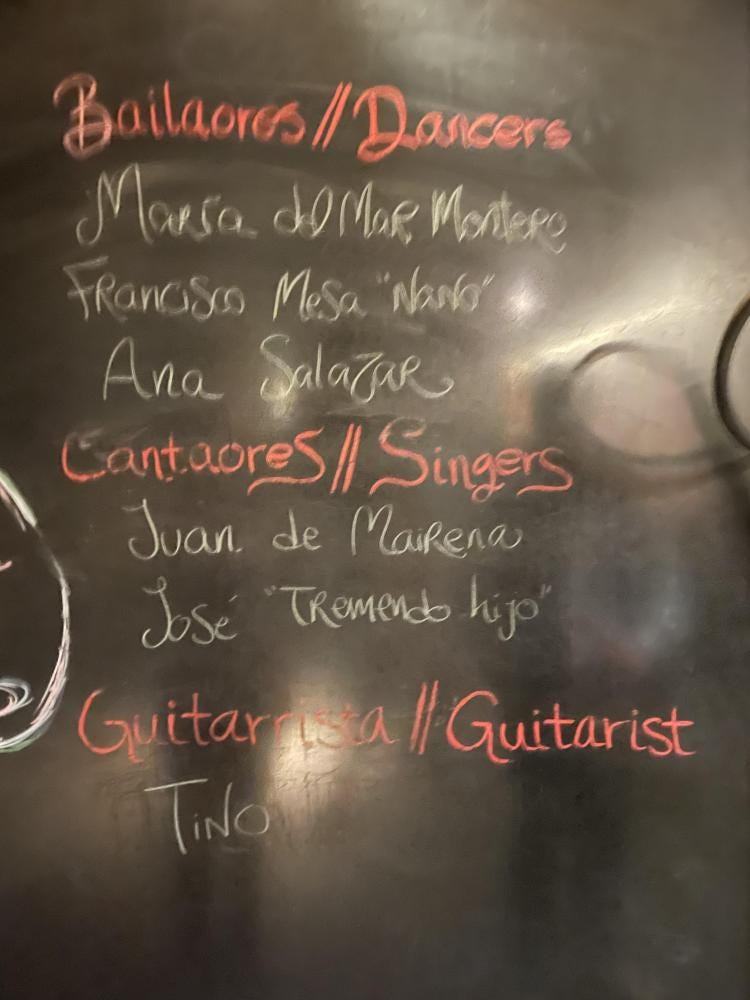 Bailaores // Dancers
María del Mar Montero
Francisco Mesa "Nano"
Ana Salazar
Cantaores // Singers
Juan de Mairena
José "Tremendo hijo"
Guitarrista // Guitarist
Tino